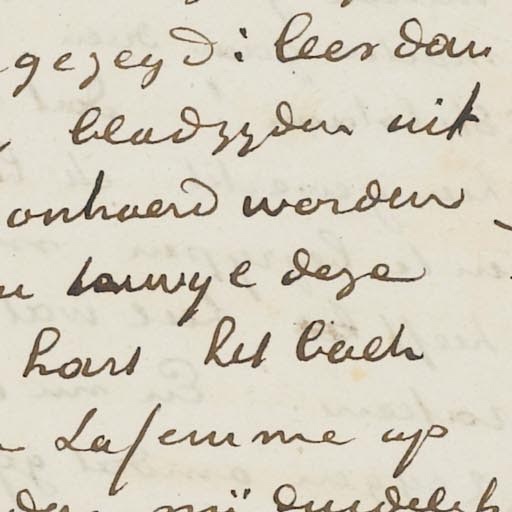 gezeyd: leer dan
bladzyden uit
onhoerd worden
terwyl deze
hart het boek
La femme op
mij duidelyk